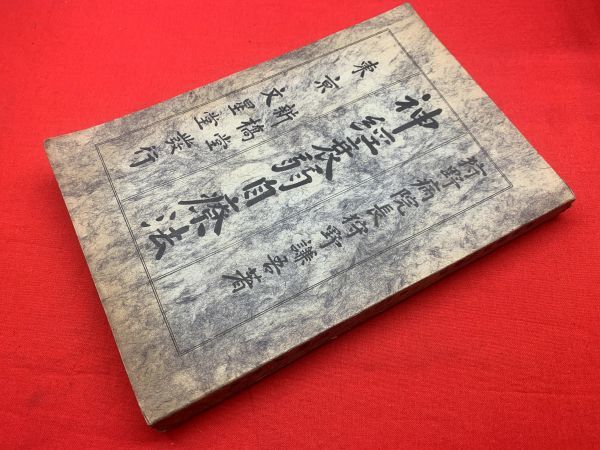 狩野病院長狩野謙吾著
神經衰弱自療法
東京
新橋堂
文星堂
發行